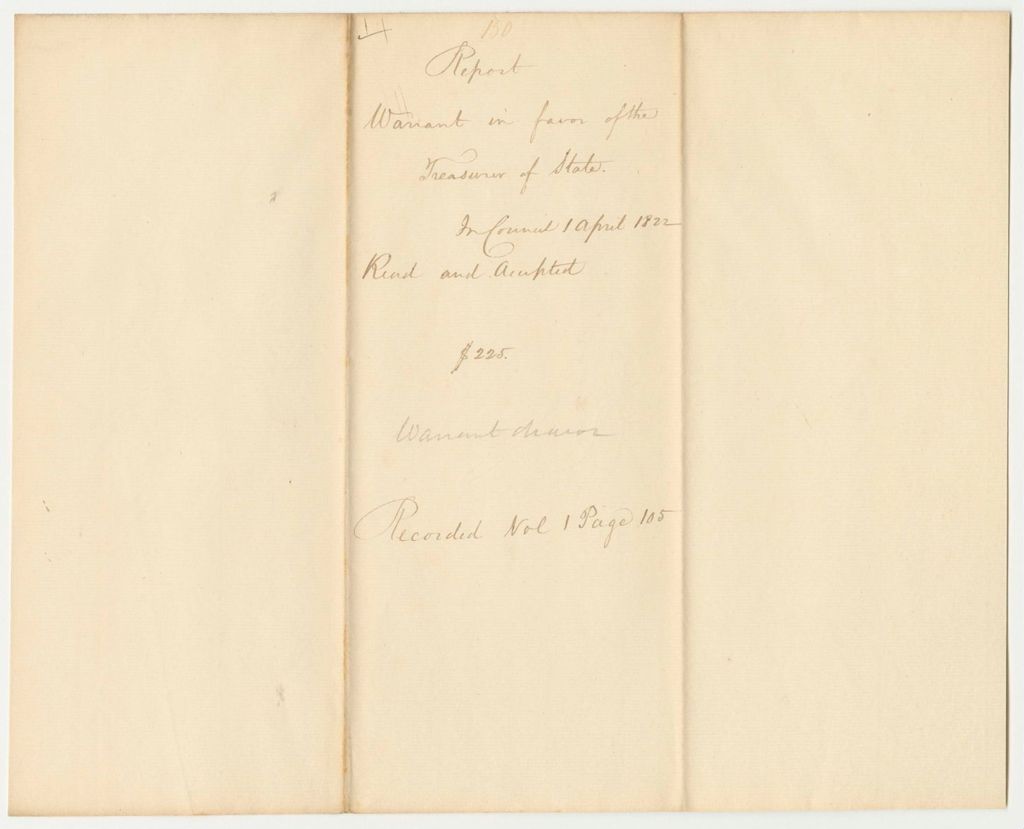 130
Report
Warrant in favor of the
Treasurer of State.
In Council 1 April 1822
Read and Accepted
$225.
Warrant drawn
Recorded Vol 1 Page 105